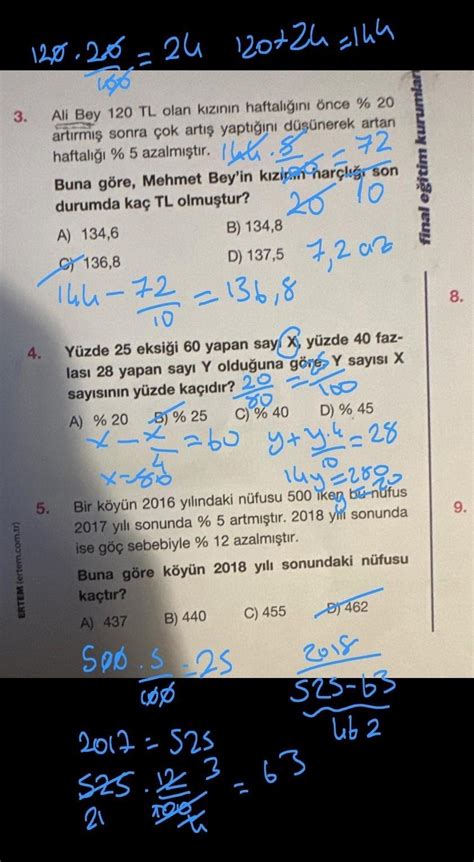 120 · 20/100 = 24 120+24=144
3. Ali Bey 120 TL olan kızının haftalığını önce % 20
artırmış sonra çok artış yaptığını düşünerek artan
haftalığı % 5 azalmıştır. 144 · 5/100 = 72/10
20
Buna göre, Mehmet Bey'in kızının harçlığı son
durumda kaç TL olmuştur?
A) 134,6 B) 134,8
C) 136,8 D) 137,5
7,2 az
144 - 72/10 = 136,8
final eğitim kurumları
8.
4. Yüzde 25 eksiği 60 yapan sayı X, yüzde 40 faz-
lası 28 yapan sayı Y olduğuna göre, Y sayısı X
sayısının yüzde kaçıdır? 20/80 = /100
A) % 20 B) % 25 C) % 40 D) % 45
x - x/4 = 60 y + y·4/10 = 28
x=80 14y=280
y=20
5. Bir köyün 2016 yılındaki nüfusu 500 iken bu nüfus
2017 yılı sonunda % 5 artmıştır. 2018 yılı sonunda
ise göç sebebiyle % 12 azalmıştır.
9.
Buna göre köyün 2018 yılı sonundaki nüfusu
kaçtır?
A) 437 B) 440 C) 455 D) 462
ERTEM (ertem.com.tr)
500 · 5/100 = 25 2018
525-63
462
2017 = 525
525 · 12/100 = 63
21 3 4